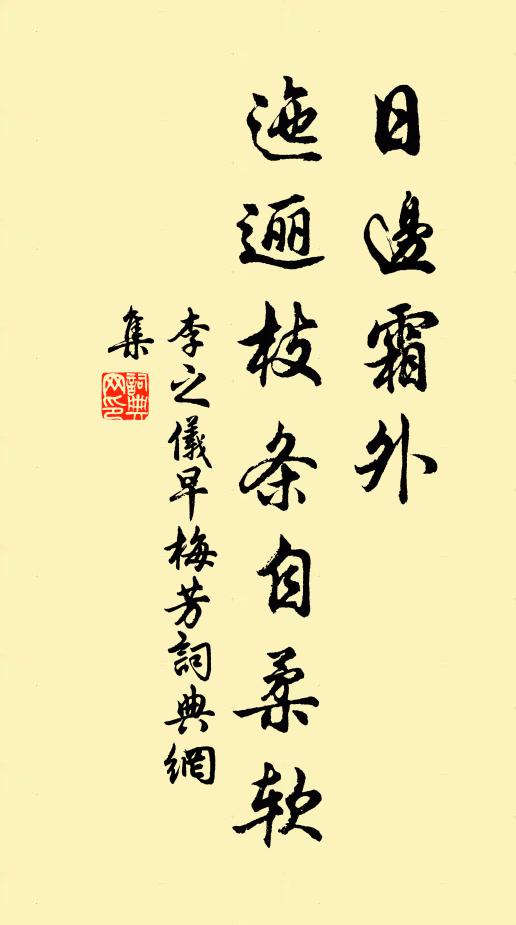 日邊霜外
迤逦枝条自柔软
李之儀早梅芳詞典網
集
詞典网印